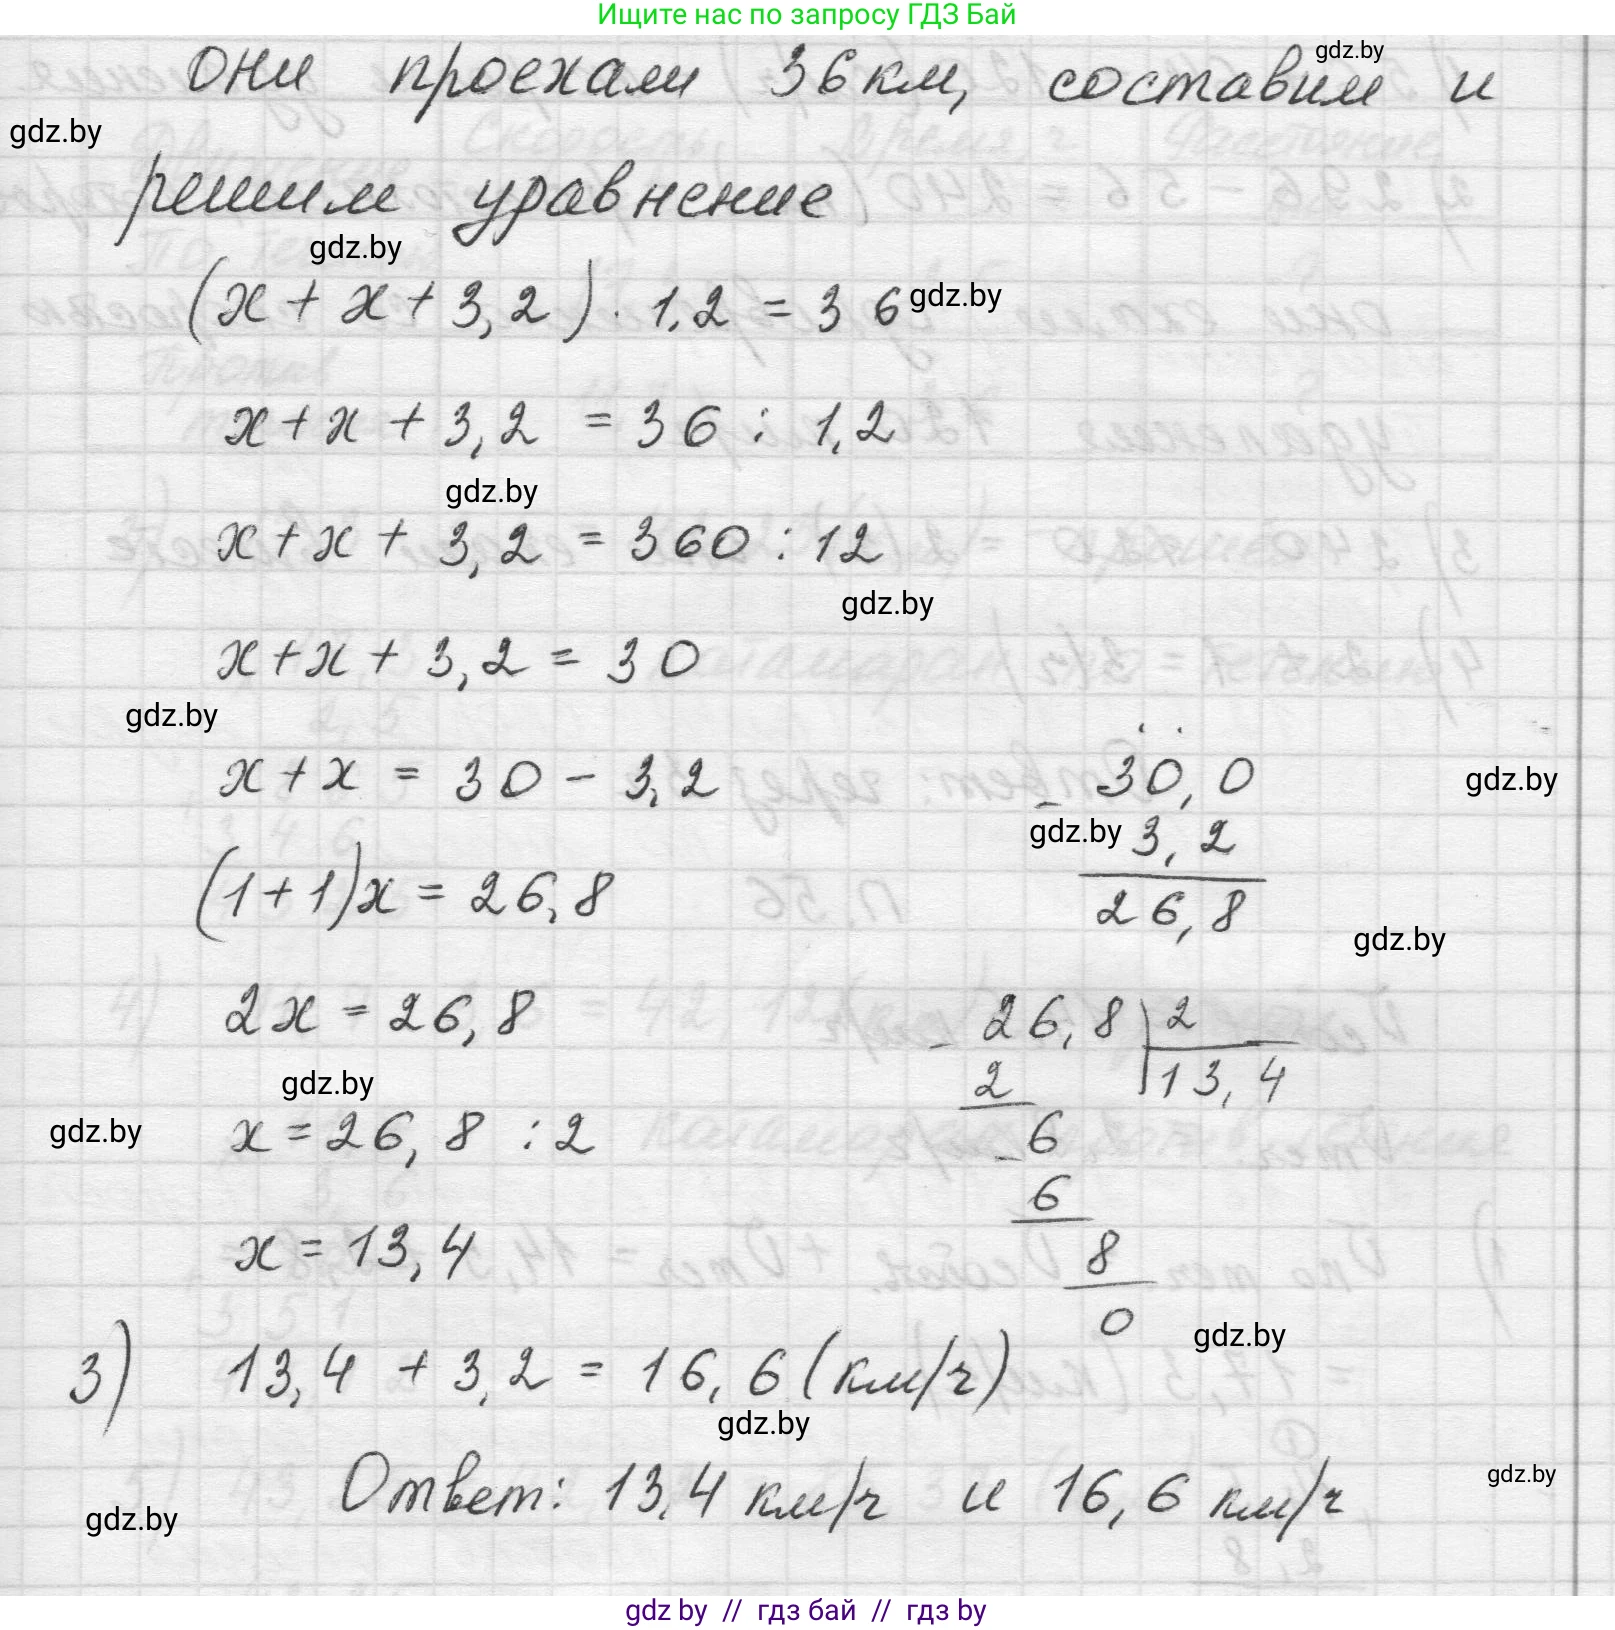 Ищите нас по запросу ГДЗ Бай
gdz.by
они проехали 36 км, составим и
gdz.by
решим уравнение
gdz.by
(x + x + 3,2) · 1,2 = 36
gdz.by
x + x + 3,2 = 36 : 1,2
gdz.by
x + x + 3,2 = 360 : 12
gdz.by
x + x + 3,2 = 30
gdz.by
x + x = 30 - 3,2
- 30,0
gdz.by
gdz.by
3,2
(1+1)x = 26,8
26,8
gdz.by
2x = 26,8
- 26,8 | 2
2
13,4
gdz.by
gdz.by
x = 26,8 : 2
- 6
6
x = 13,4
8
0
gdz.by
3) 13,4 + 3,2 = 16,6 (км/ч)
gdz.by
Ответ: 13,4 км/ч и 16,6 км/ч
gdz.by
gdz.by
gdz by // гдз бай // гдз by